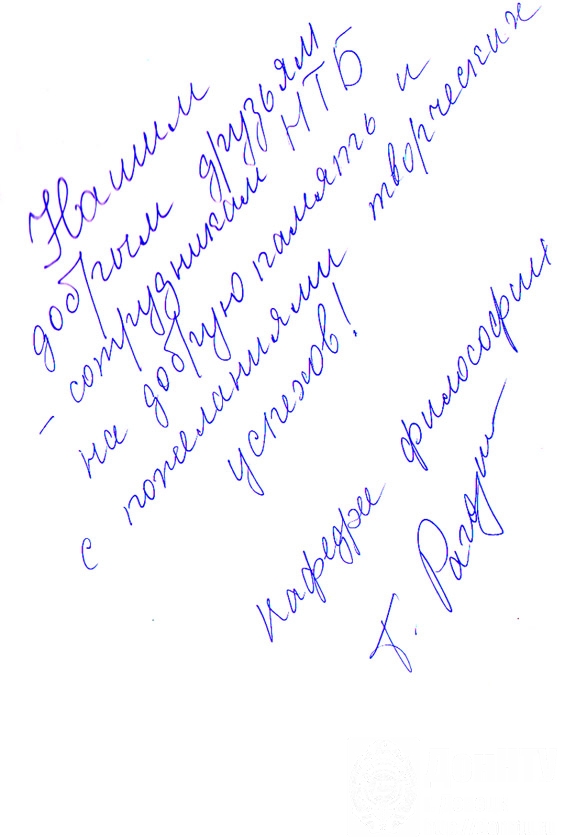 Нашим
добрым друзьям
- сотрудникам НТБ
на добрую память и
с пожеланиями творческих
успехов!
кафедра философии